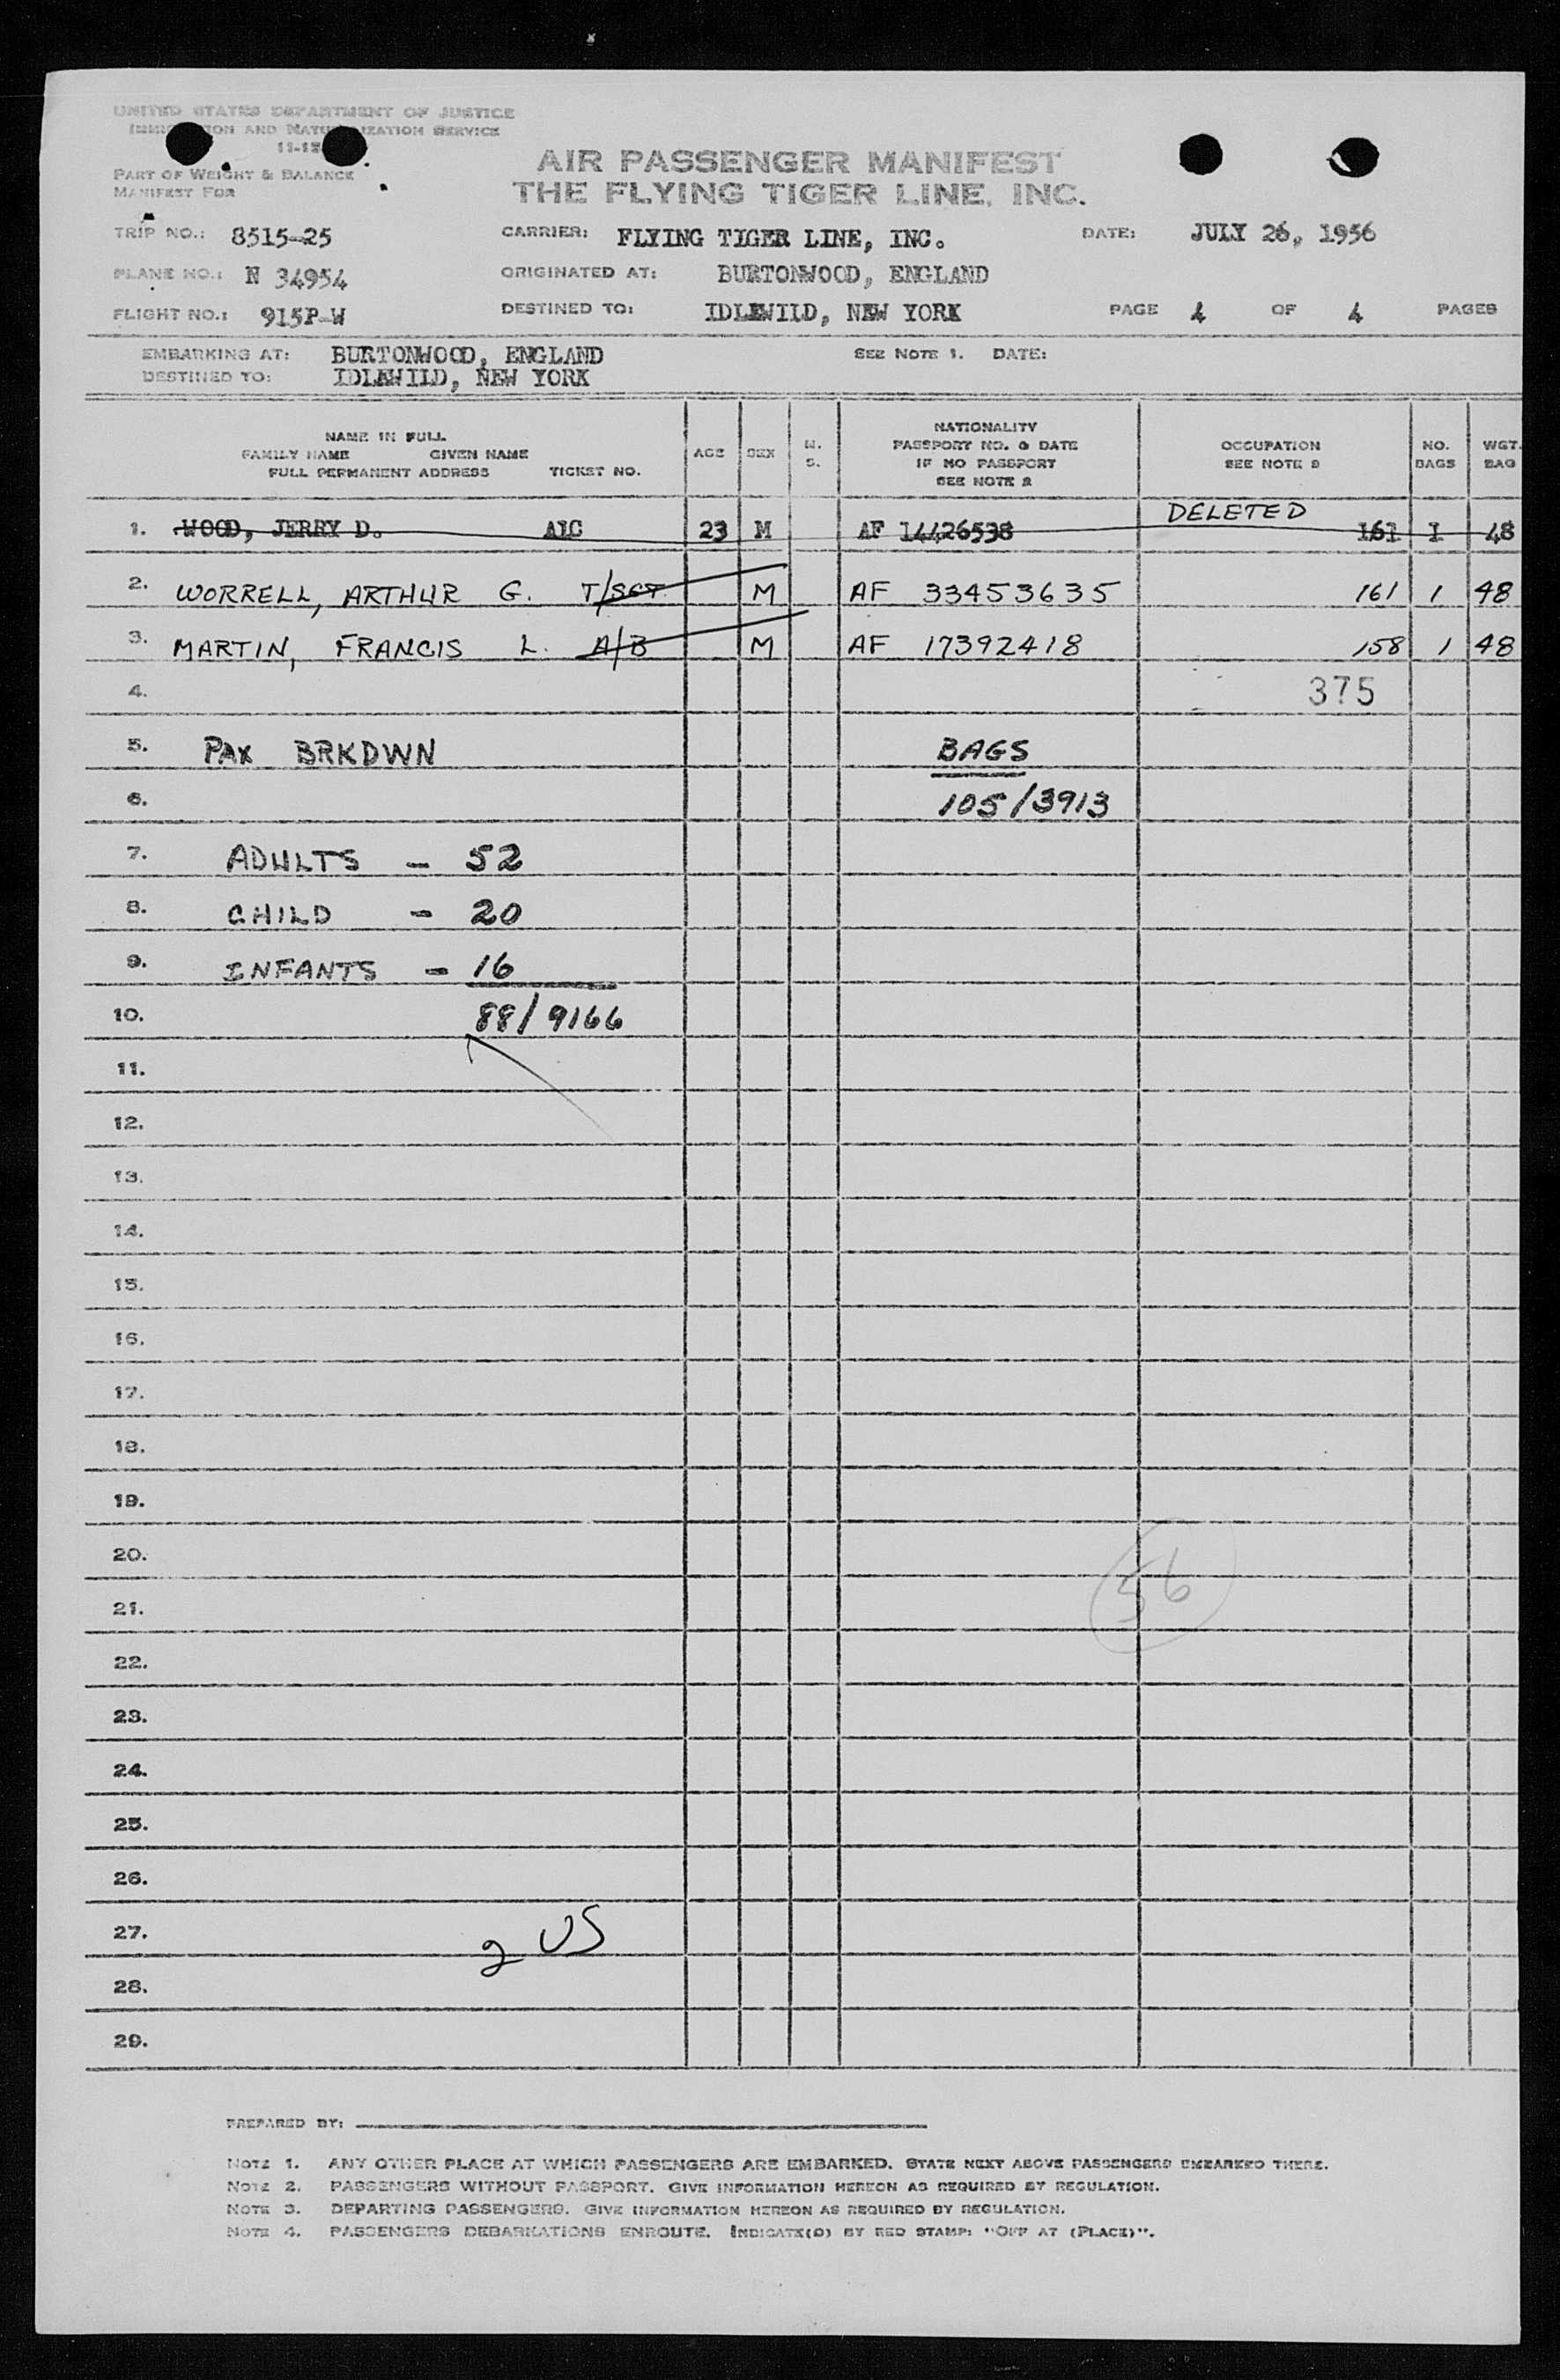 UNITED STATES DEPARTMENT OF JUSTICE
IMMIGRATION AND NATURALIZATION SERVICE
PART OF WEIGHT & BALANCE
MANIFEST FOR
AIR PASSENGER MANIFEST
THE FLYING TIGER LINE, INC.
TRIP NO.: 8515-25 CARRIER: FLYING TIGER LINE, INC. DATE: JULY 26, 1956
PLANE NO.: N 34954 ORIGINATED AT: BURTONWOOD, ENGLAND
FLIGHT NO.: 915P-W DESTINED TO: IDLEWILD, NEW YORK PAGE 4 OF 4 PAGES
EMBARKING AT: BURTONWOOD, ENGLAND SEE NOTE 1. DATE:
DESTINED TO: IDLEWILD, NEW YORK
NAME IN FULL
FAMILY NAME GIVEN NAME
FULL PERMANENT ADDRESS TICKET NO.
AGE
SEX
M.
S.
NATIONALITY
PASSPORT NO. & DATE
IF NO PASSPORT
SEE NOTE 2
OCCUPATION
SEE NOTE 3
NO.
BAGS
WGT.
BAG
DELETED
1. WOOD, JERRY D. A1C 23 M AF 14426538 161 1 48
2. WORRELL, ARTHUR G. T/SGT M AF 33453635 161 1 48
3. MARTIN, FRANCIS L. A/B M AF 17392418 158 1 48
4. 375
5. PAX BRKDWN BAGS
6. 105/3913
7. ADULTS - 52
8. CHILD - 20
9. INFANTS - 16
10. 88/9166
11.
12.
13.
14.
15.
16.
17.
18.
19.
20.
56
21.
22.
23.
24.
25.
26.
27. 2 US
28.
29.
PREPARED BY:
NOTE 1. ANY OTHER PLACE AT WHICH PASSENGERS ARE EMBARKED. STATE NEXT ABOVE PASSENGERS EMBARKED THERE.
NOTE 2. PASSENGERS WITHOUT PASSPORT. GIVE INFORMATION HEREON AS REQUIRED BY REGULATION.
NOTE 3. DEPARTING PASSENGERS. GIVE INFORMATION HEREON AS REQUIRED BY REGULATION.
NOTE 4. PASSENGERS DEBARKATIONS ENROUTE. INDICATE(D) BY RED STAMP: "OFF AT (PLACE)".